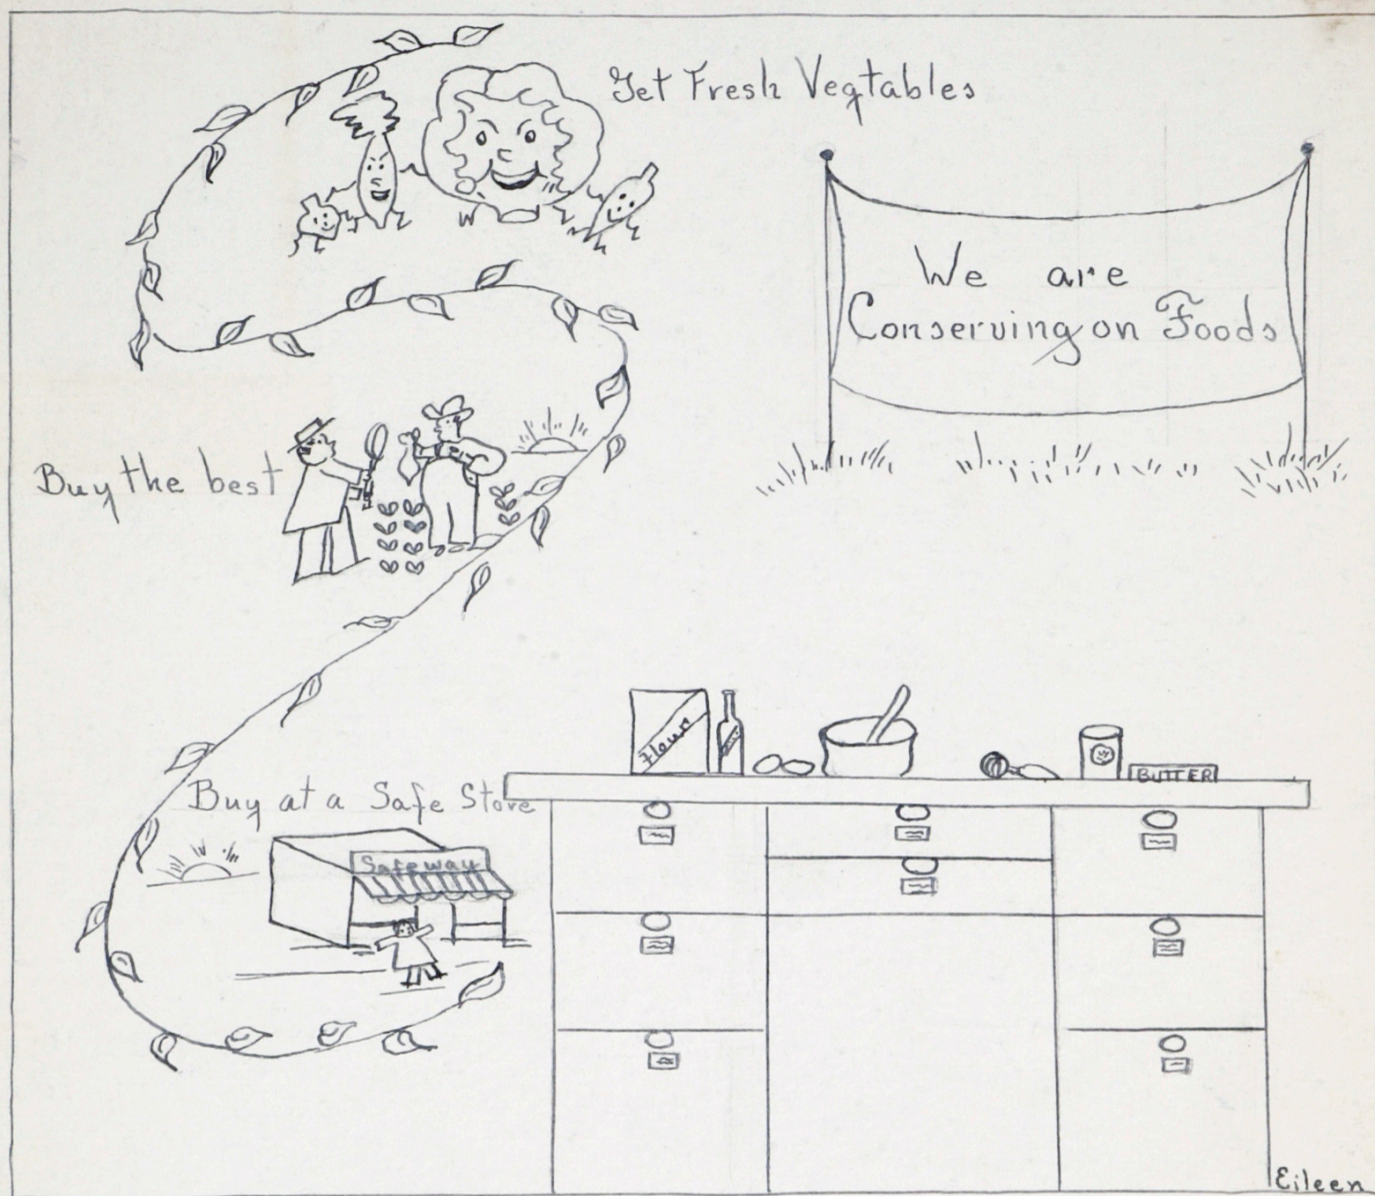 Get Fresh Vegtables
We are
Conserving on Foods
Buy the best
Flour
BUTTER
Buy at a Safe Store
Safeway
Eileen